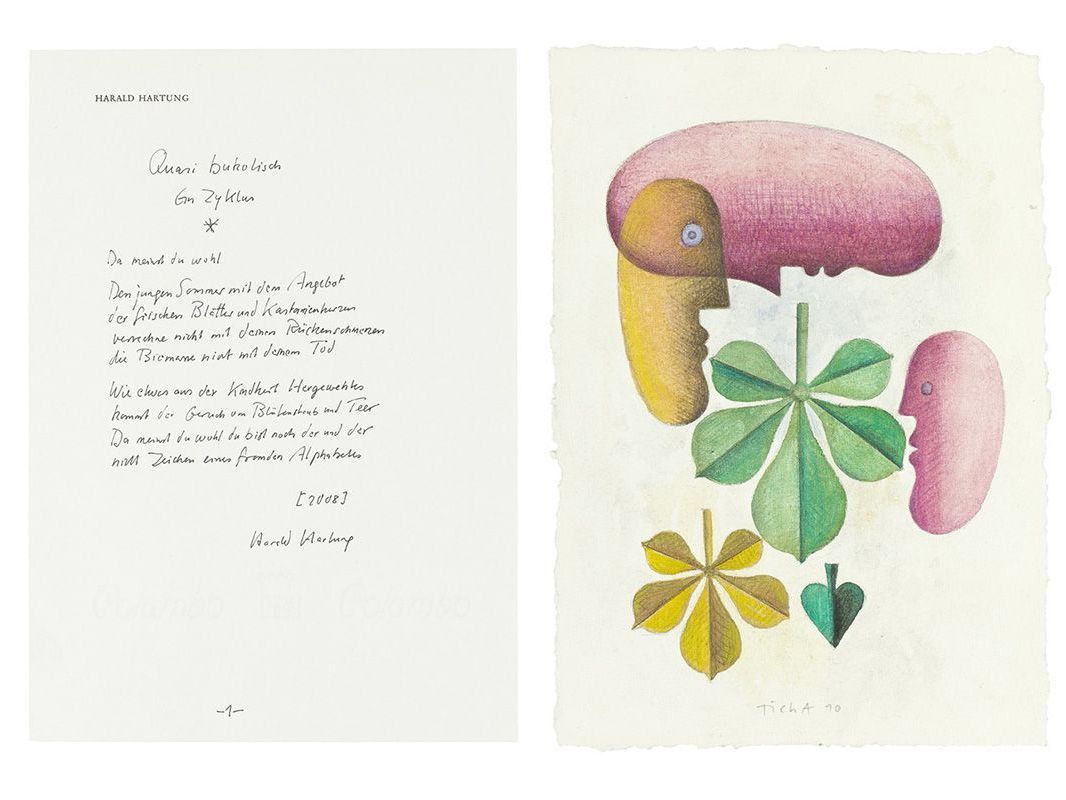 HARALD HARTUNG
Quasi bukolisch
Ein Zyklus
*
Da meinst du wohl
Den jungen Sommer mit dem Angebot
der frischen Blätter und Kastanienkerzen
verrechne nicht mit deinen Rückenschmerzen
die Biomasse nicht mit deinem Tod
Wie etwas aus der Kindheit Hergewehtes
kommt der Geruch von Blütenstaub und Teer
Da meinst du wohl du bist noch der und der
nicht Zeichen eines fremden Alphabetes
[2008]
Harald Hartung
-1-
TichA 10